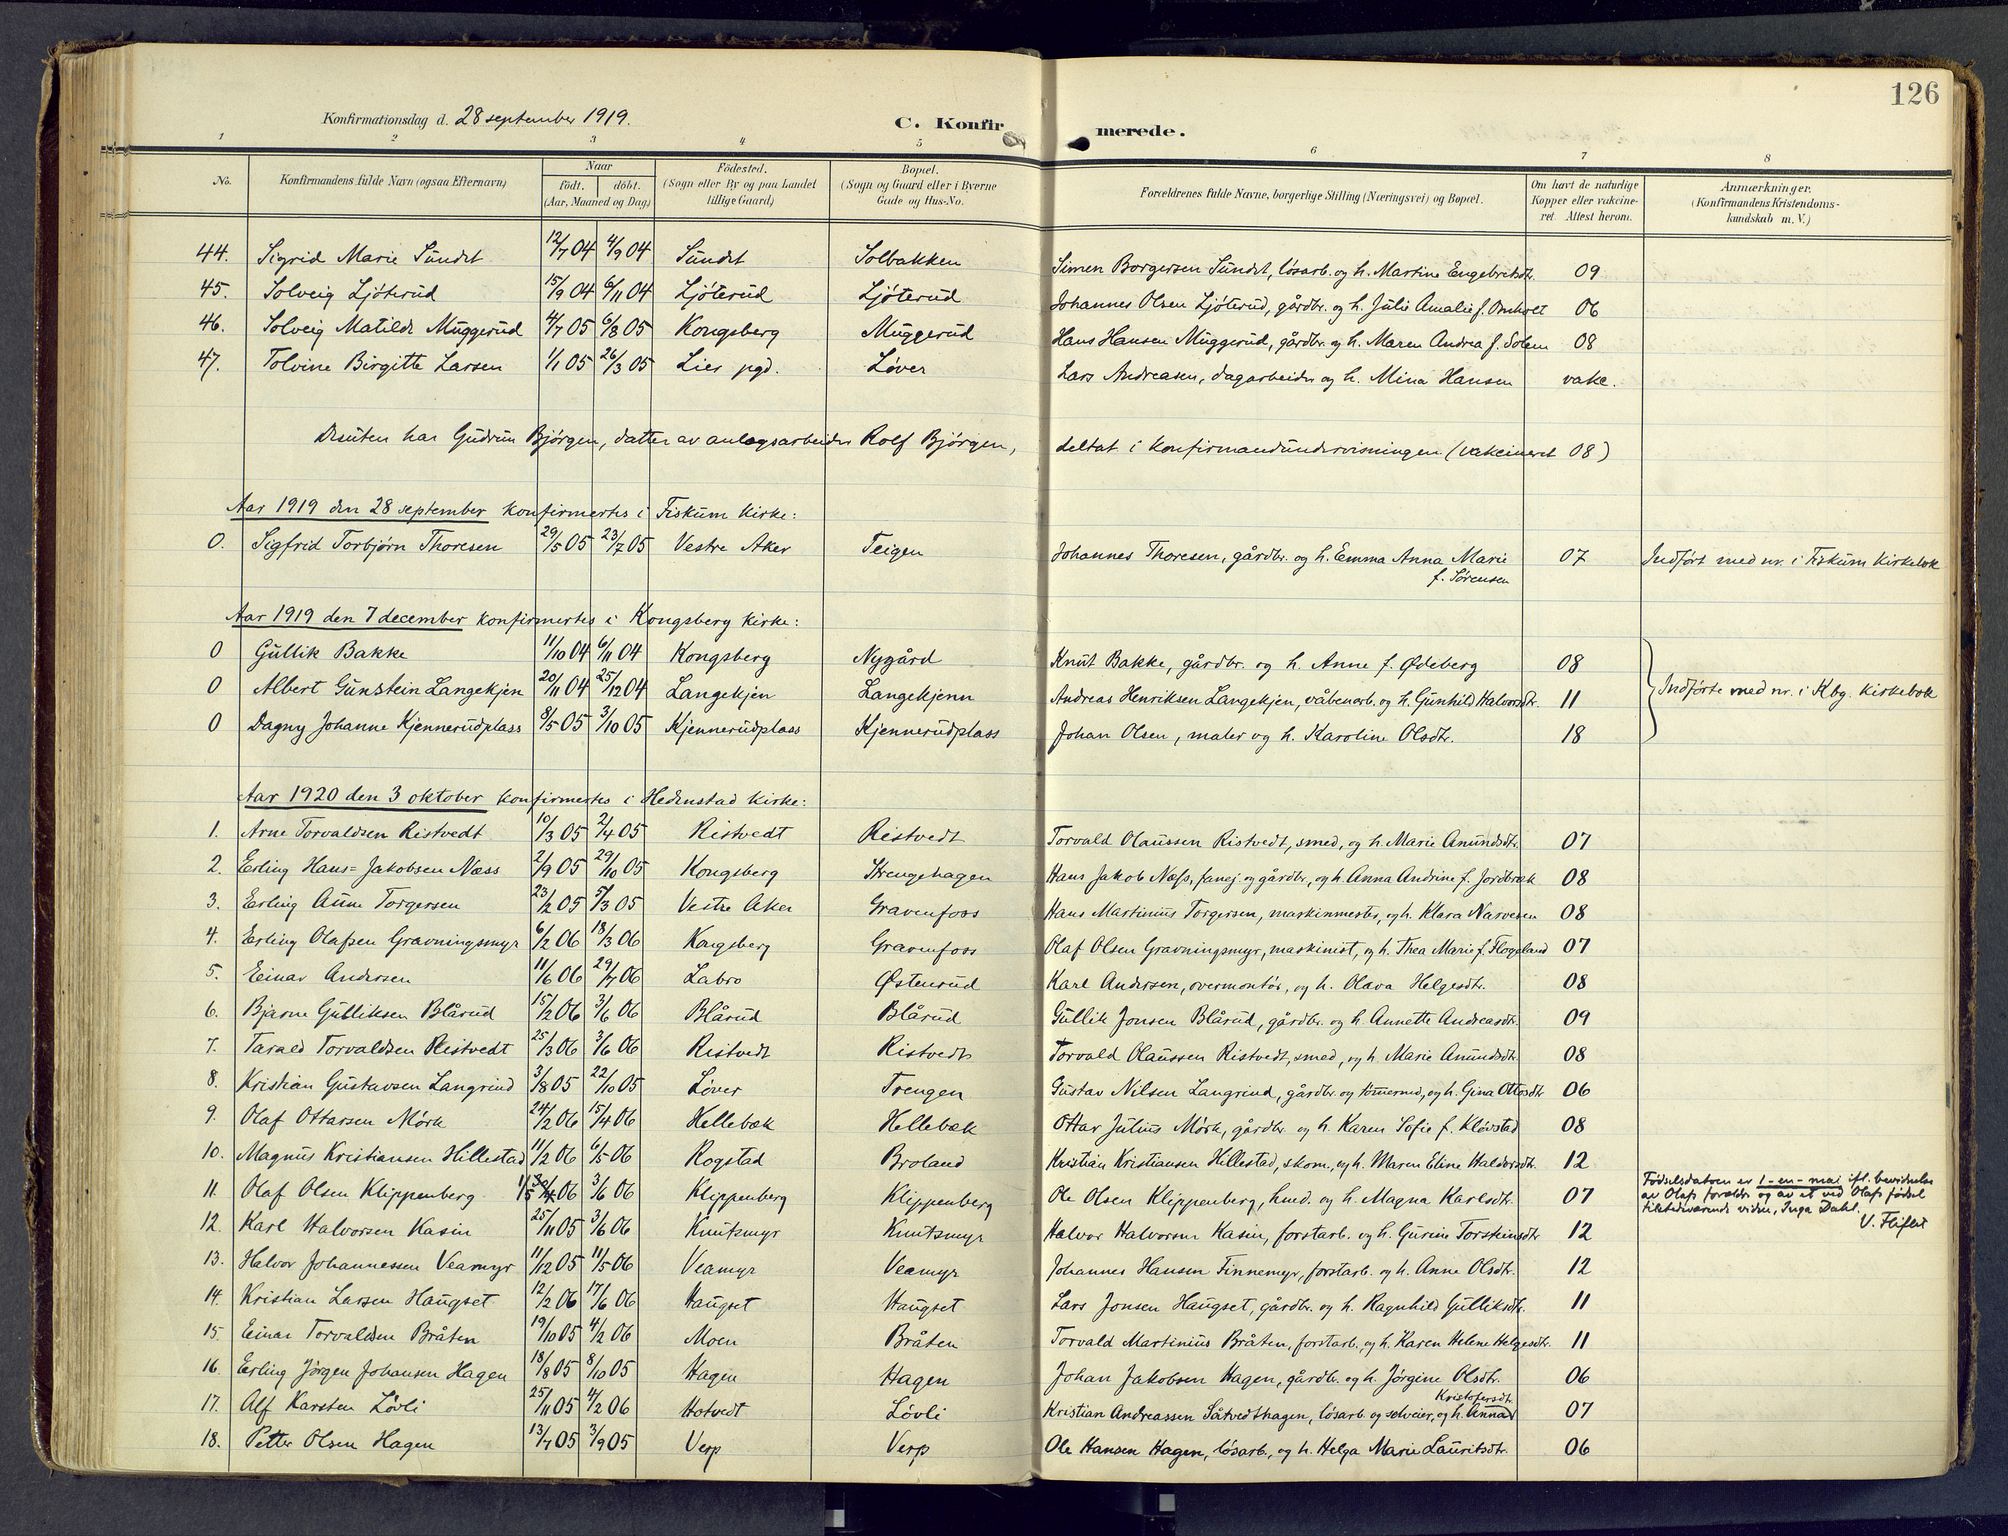 126
Konfirmationsdag d. 28 september 1919.
C. Konfirmerede.
1 2 3 4 5 6 7 8
No. Konfirmandens fulde Navn (ogsaa Efternavn) Naar født. døbt. (Aar, Maaned og Dag) Fødested. (Sogn eller By og paa Landet tillige Gaard) Bopæl. (Sogn og Gaard eller i Byerne Gade og Hus-No. Forældrenes fulde Navne, borgerlige Stilling (Næringsvei) og Bopæl. Om havt de naturlige Kopper eller vakcineret. Attest herom. Anmærkninger. (Konfirmandens Kristendomskundskab m. V.)
44. Sigrid Marie Sundet 12/7 04 4/9 04 Sundet Solbakken Simen Borgersen Sundet, løsarb. og h. Martine Engebretsdtr. 09
45. Solveig Ljøterud 15/9 04 6/11 04 Ljøterud Ljøterud Johannes Olsen Ljøterud, gårdbr. og h. Julie Amalie f. Omholt 06
46. Solveig Matilde Muggerud 4/7 05 6/8 05 Kongsberg Muggerud Hans Hansen Muggerud, gårdbr. og h. Maren Andrea f. Solem 08
47. Tolvine Birgitte Larsen 1/1 05 26/3 05 Lier pgd. Løver Lars Andreasen, dagarbeider og h. Mina Hansen vakc.
Desuten har Gudrun Bjørgen, datter av anlægsarbeider Rolf Bjørgen, deltat i konfirmandundervisningen (vakcineret 08)
Aar 1919 den 28 september konfirmertes i Fiskum kirke:
0. Sigfrid Torbjørn Thoresen 29/5 05 23/7 05 Vestre Aker Teigen Johannes Thoresen, gårdbr. og h. Emma Anna Marie f. Sørensen 07 Indført med nr. i Fiskum kirkebok
Aar 1919 den 7 december konfirmertes i Kongsberg kirke:
0 Gullik Bakke 11/10 04 6/11 04 Kongsberg Nygård Knut Bakke, gårdbr. og h. Anne f. Ødeberg 08
0 Albert Gunstein Langekjen 20/11 04 25/12 04 Langekjen Langekjenn Andreas Henriksen Langekjen, våbenarb. og h. Gunhild Halvorsdtr. 11 Indførte med nr. i Kbg. kirkebok
0 Dagny Johanne Kjennerudplass 8/5 05 3/10 05 Kjennerudplass Kjennerudplass Johan Olsen, maler og h. Karoline Olsdtr. 18
Aar 1920 den 3 oktober konfirmertes i Hedenstad kirke:
1. Arne Torvaldsen Ristvedt 10/3 05 2/4 05 Ristvedt Ristvedt Torvald Olaussen Ristvedt, smed, og h. Marie Amundsdtr. 07
2. Erling Hans=Jakobsen Næss 2/9 05 29/10 05 Kongsberg Strengehagen Hans Jakob Næss, fanej. og gårdbr., og h. Anna Andrine f. Jordbræk 08
3. Erling Aune Torgersen 23/2 05 5/3 05 Vestre Aker Gravenfoss Hans Martinius Torgersen, maskinmester, og h. Klara Narvesen 08
4. Erling Olafsen Gravningsmyr 6/2 06 18/3 06 Kongsberg Gravenfoss Olaf Olsen Gravningsmyr, maskinist, og h. Thea Marie f. Flogeland 07
5. Einar Andersen 11/6 06 29/7 06 Labro Østenrud Karl Andersen, overmontør, og h. Olava Helgesdtr. 08
6. Bjarne Gulliksen Blårud 15/2 06 3/6 06 Blårud Blårud Gullik Jonsen Blårud, gårdbr. og h. Annette Andreasdtr. 09
7. Tarald Torvaldsen Ristvedt 25/3 06 3/6 06 Ristvedt Ristvedt Torvald Olaussen Ristvedt, smed, og h. Marie Amundsdtr. 08
8. Kristian Gustavsen Langrind 3/8 05 22/10 05 Løver Trengen Gustav Nilsen Langrind, gårdbr. og tømmerm., og h. Gina Ottosdtr 06
9. Olaf Ottarsen Mørk 24/2 06 15/4 06 Hellebæk Hellebæk Ottar Julius Mørk, gårdbr. og h. Karen Sofie f. Kløvstad 08
10. Magnus Kristiansen Hillestad 11/2 06 6/5 06 Rogstad Broland Kristian Kristiansen Hillestad, skom., og h. Maren Eline Haldorsdtr. 12
11. Olaf Olsen Klippenberg 1/5 30/4 06 3/6 06 Klippenberg Klippenberg Ole Olsen Klippenberg, hmd. og h. Magna Karlsdtr. 07 Fødselsdatoen er 1-en-mai ifl. bevidnelse av Olafs forældr. og av et ved Olafs fødsel tilstedeværende vidne, Inga Dahl.
12. Karl Halvorsen Kasin 25/11 05 3/6 06 Knutsmyr Knutsmyr Halvor Halvorsen Kasin, forstarb. og h. Gurine Torsteinsdtr 12
13. Halvor Johannessen Veamyr 11/12 05 11/5 06 Veamyr Veamyr Johannes Hansen Finnemyr, forstarb. og h. Anne Olsdtr. 12
14. Kristian Larsen Haugset 12/2 06 17/6 06 Haugset Haugset Lars Jonsen Haugset, gårdbr. og h. Ragnhild Gulliksdtr. 11
15. Einar Torvaldsen Bråten 19/10 05 4/2 06 Moen Bråten Torvald Martinius Bråten, forstarb. og h. Karen Helene Helgesdtr. 11
16. Erling Jørgen Johansen Hagen 18/8 05 8/10 05 Hagen Hagen Johan Jakobsen Hagen, gårdbr. og h. Jørgine Olsdtr. 06
17. Alf Karsten Løvli 25/11 05 4/2 06 Hotvedt Løvli Kristian Andreassen Såtvedthagen, løsarb. og selveier, og h. Anna Kristofersdtr. 07
18. Petter Olsen Hagen 13/7 05 3/9 05 Verp Verp Ole Hansen Hagen, løsarb., og h. Helga Marie Lauritsdtr. 06